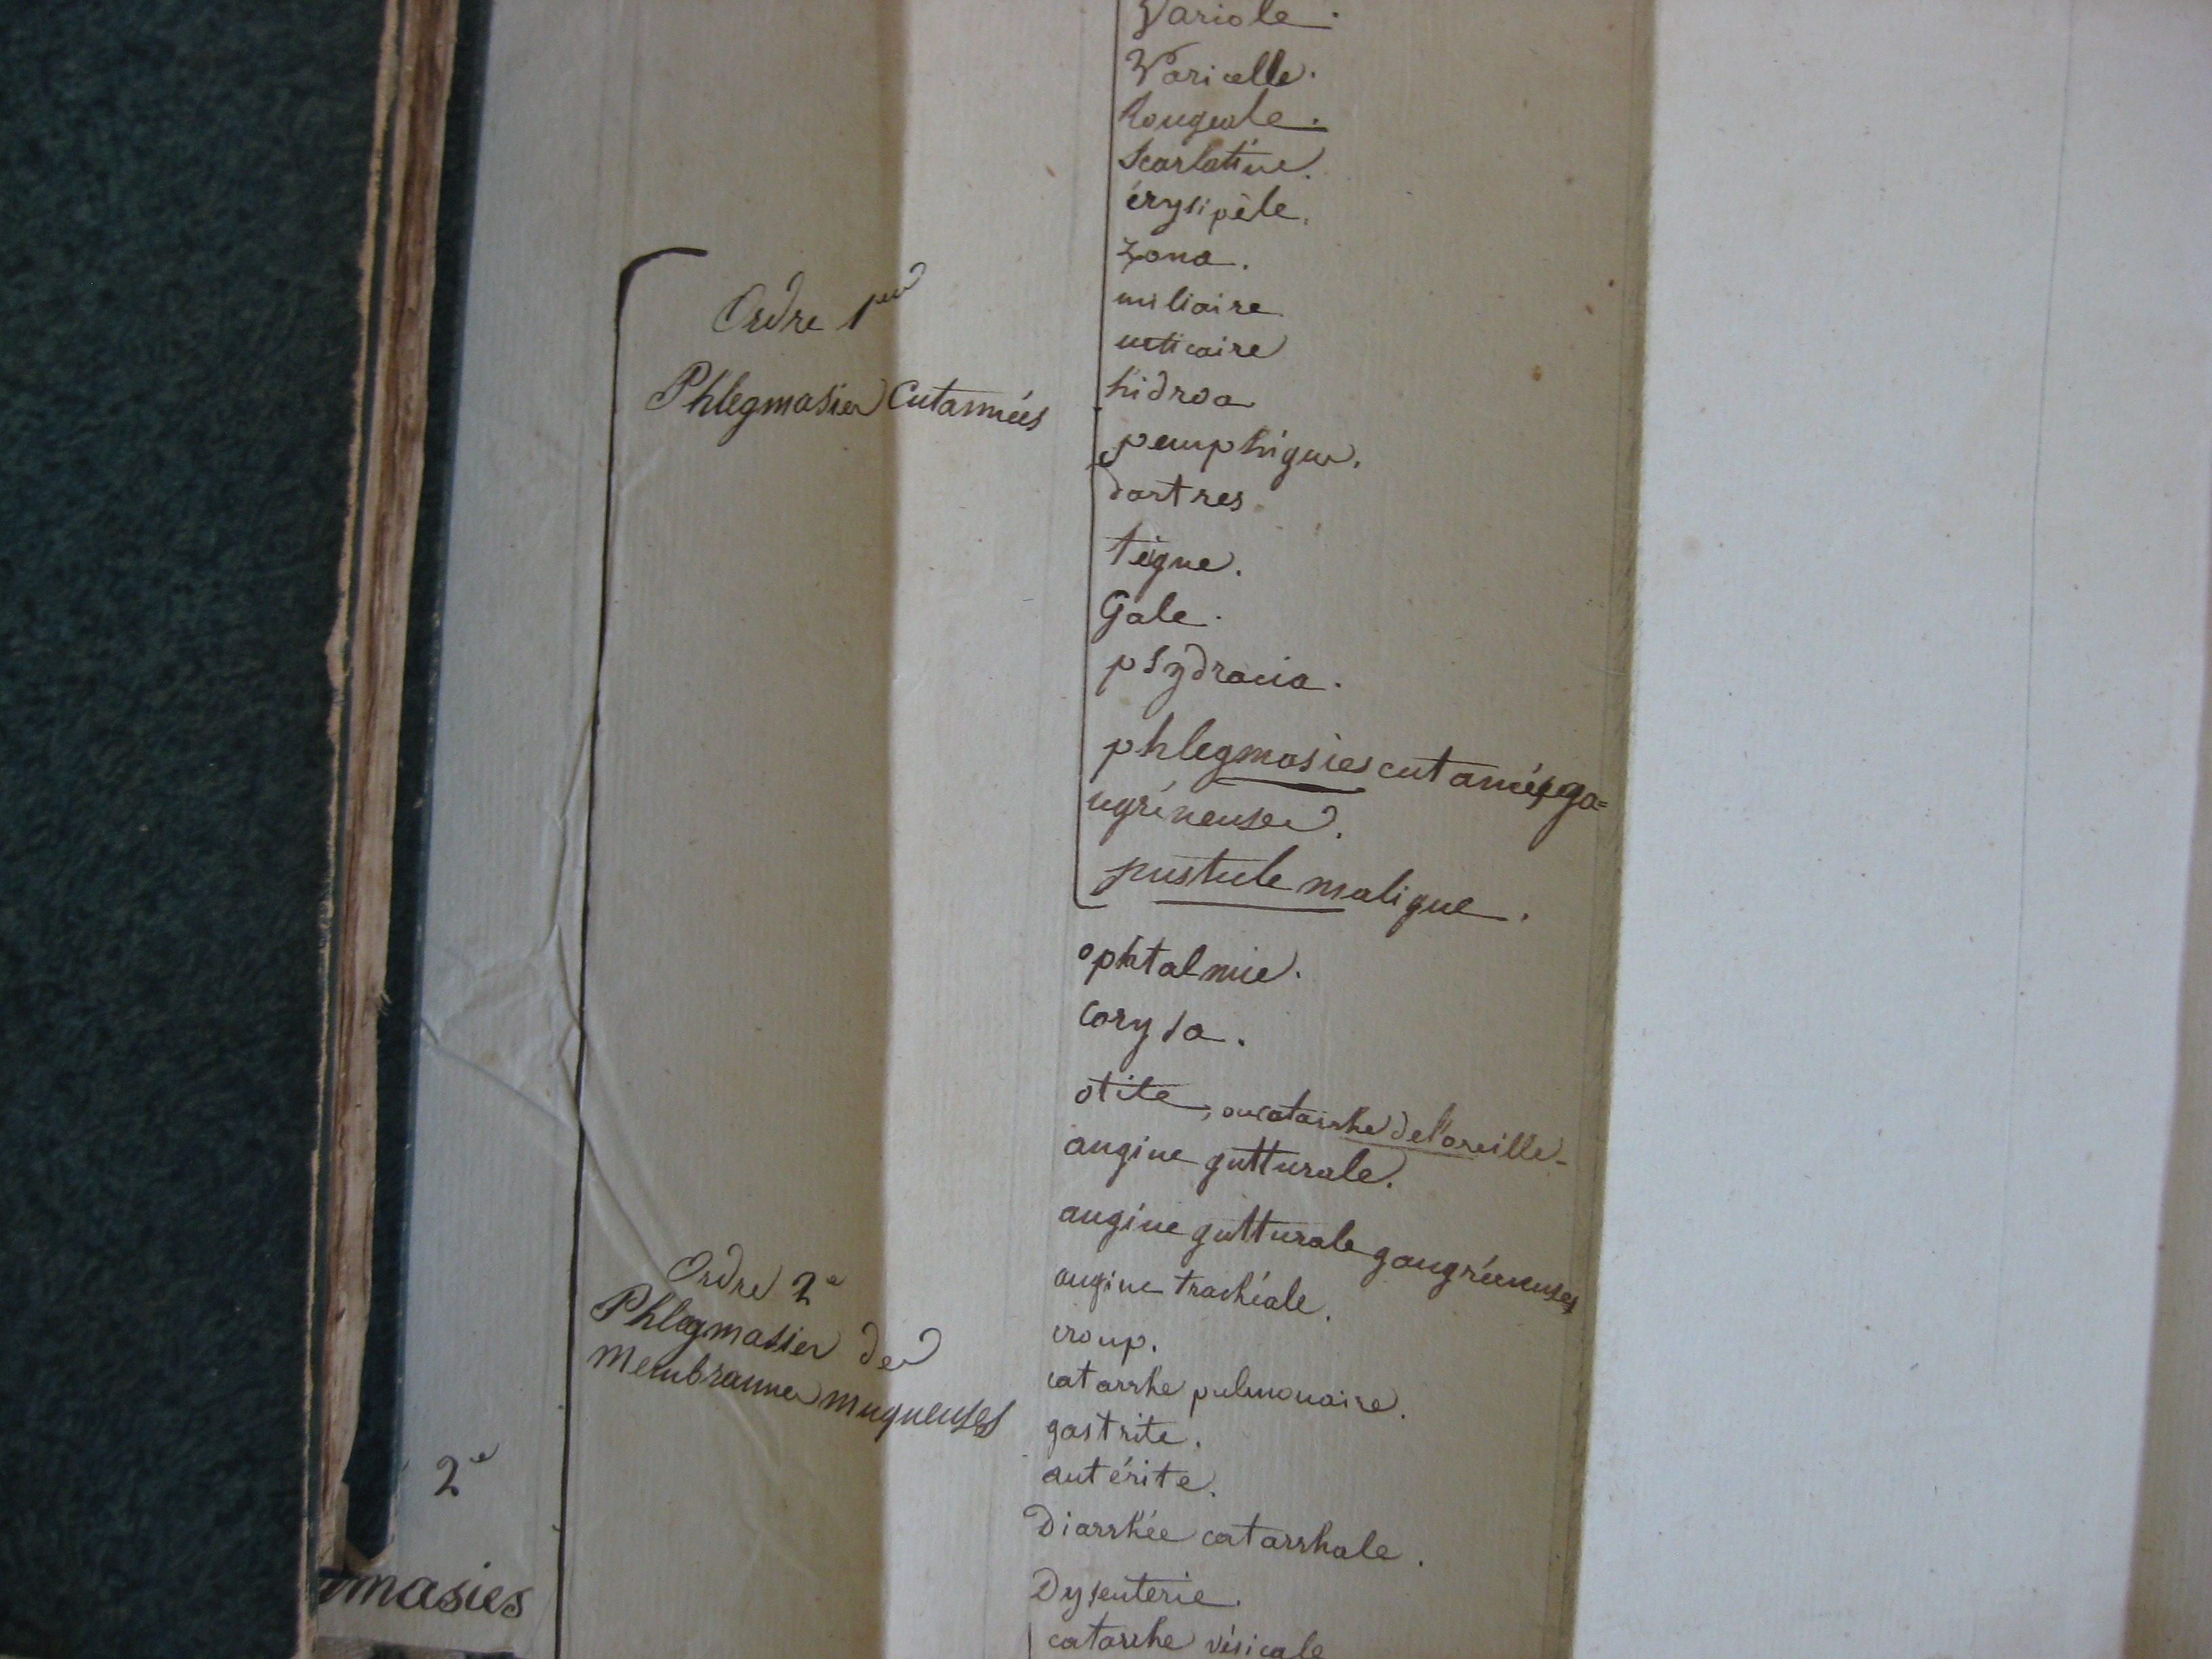 Variole.
Varicelle.
Rougeole.
Scarlatine.
érysipèle.
Zona.
miliaire
urticaire
hidroa
pemphigus.
dartres
teigne.
Gale.
psydracia.
phlegmasies cutanées ga=
ngréneuses.
pustule maligne.
Ordre 1er
Phlegmasies Cutannées
ophtalmie.
Corysa.
otite, ou catarrhe de l'oreille
angine gutturale.
angine gutturale gangréneuses
angine trachéale.
croup.
catarrhe pulmonaire.
gastrite.
antérite.
Diarrhée catarrhale.
Dysenterie.
catarrhe vésicale
Ordre 2e
Phlegmasies des
Membrannes muqueuses
2e
masies